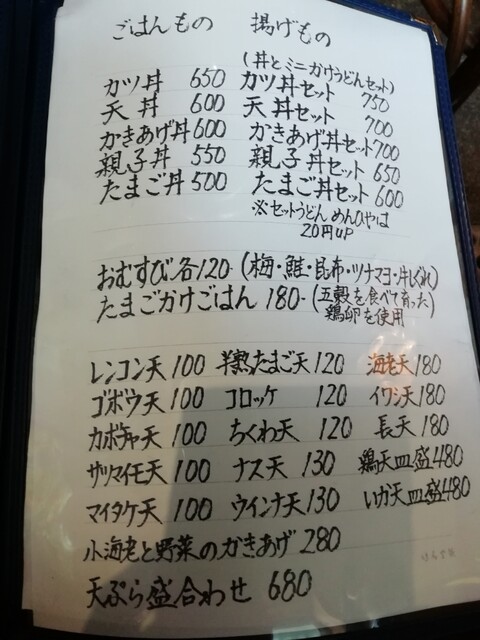 ごはんもの 揚げもの
(丼とミニかけうどんセット)
カツ丼 650 カツ丼セット 750
天丼 600 天丼セット 700
かきあげ丼 600 かきあげ丼セット 700
親子丼 550 親子丼セット 650
たまご丼 500 たまご丼セット 600
※セットうどん めんひやは
20円UP
おむすび各120- (梅・鮭・昆布・ツナマヨ・牛しぐれ)
たまごかけごはん 180- (五穀を食べて育った
鶏卵を使用)
レンコン天 100 半熟たまご天 120 海老天 180
ゴボウ天 100 コロッケ 120 イワシ天 180
カボチャ天 100 ちくわ天 120 長天 180
サツマイモ天 100 ナス天 130 鶏天皿盛 480
マイタケ天 100 ウインナ天 130 いか天皿盛 480
小海老と野菜のかきあげ 280
天ぷら盛合わせ 680